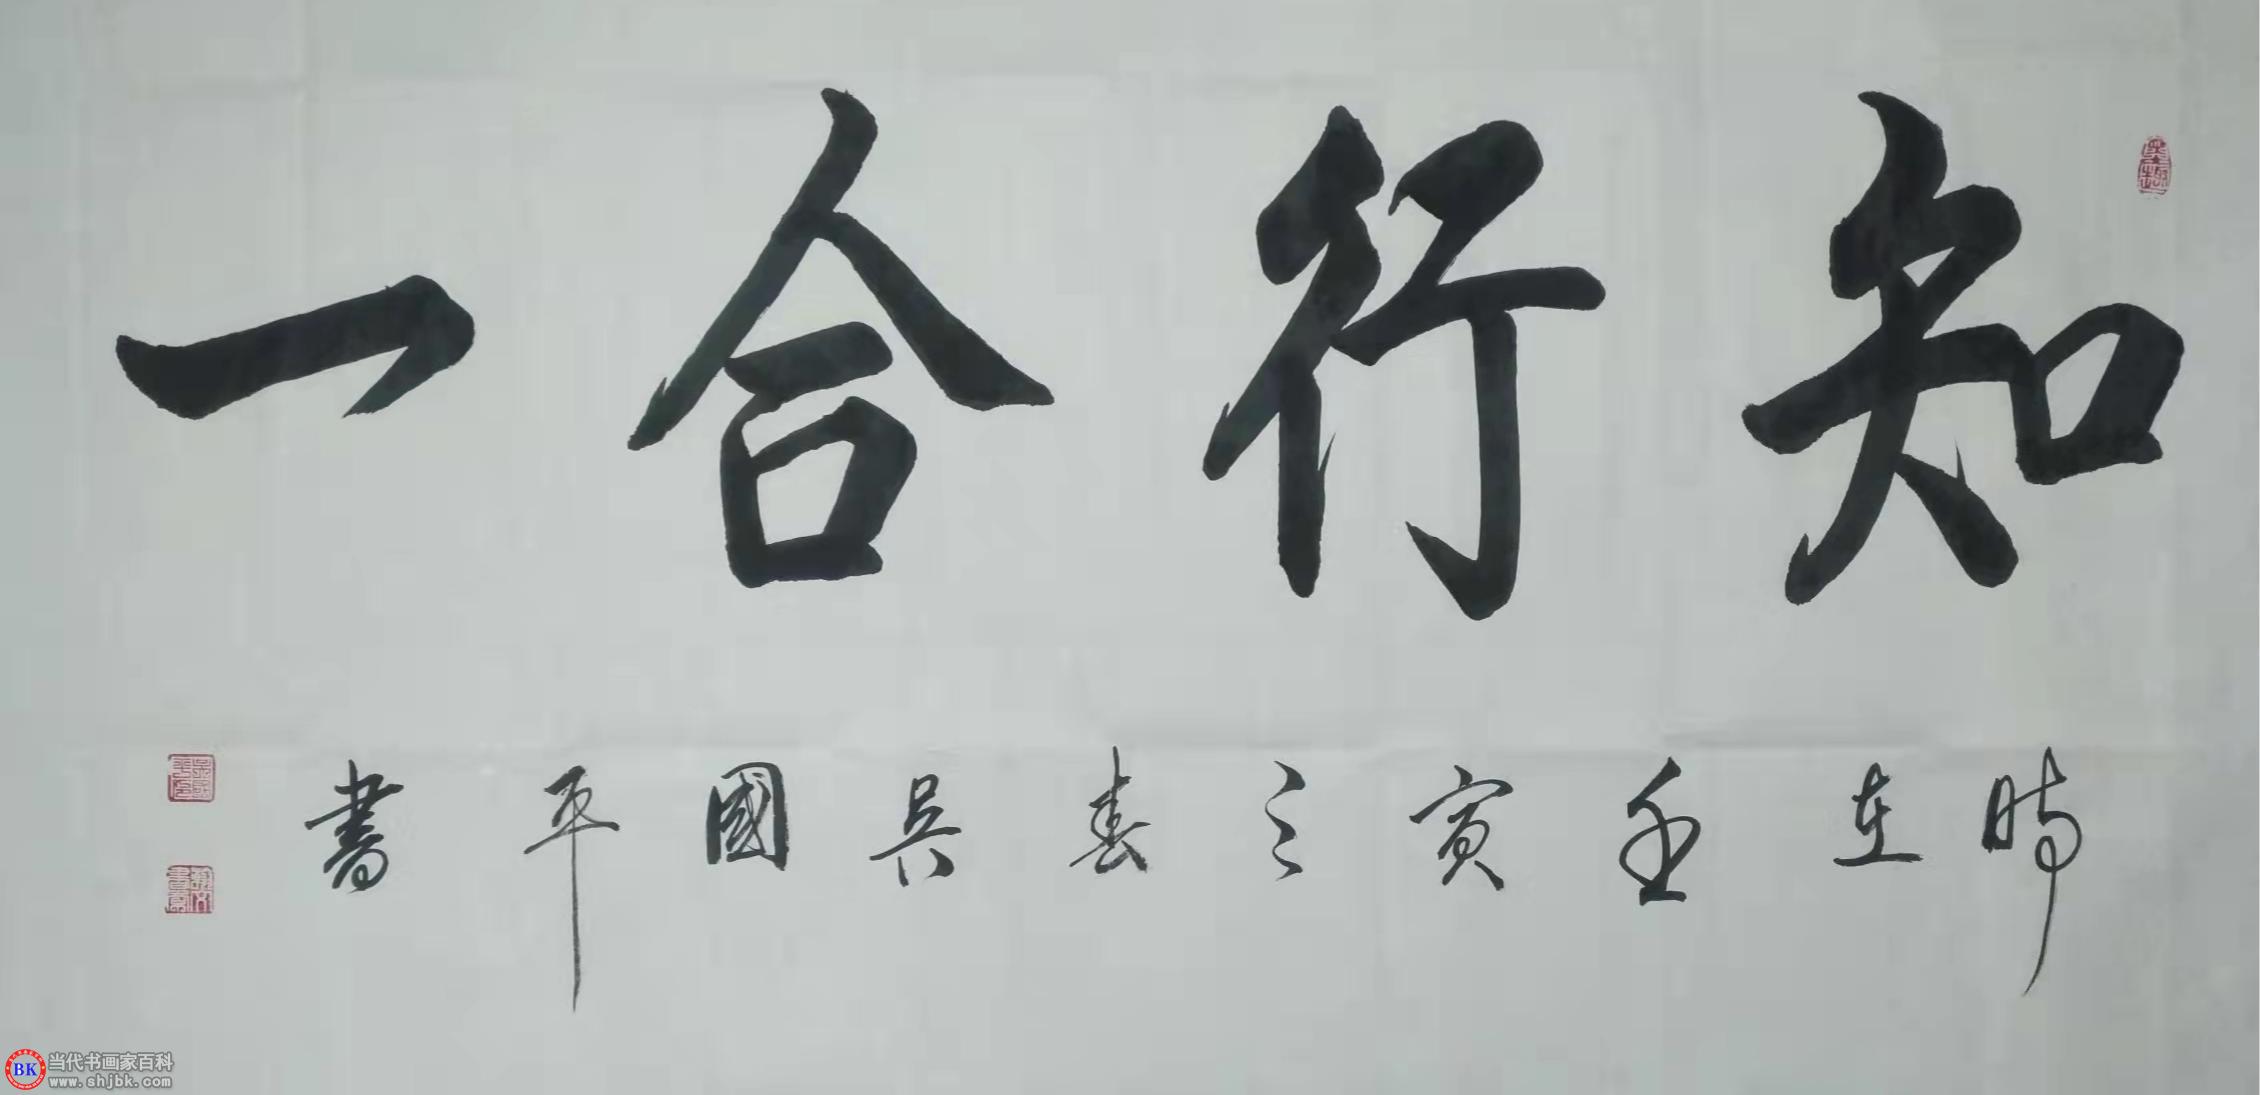 知行合一
時在壬寅之春吳國平書
墨趣
吳國平印
BK 当代书画家百科
www.shjbk.com